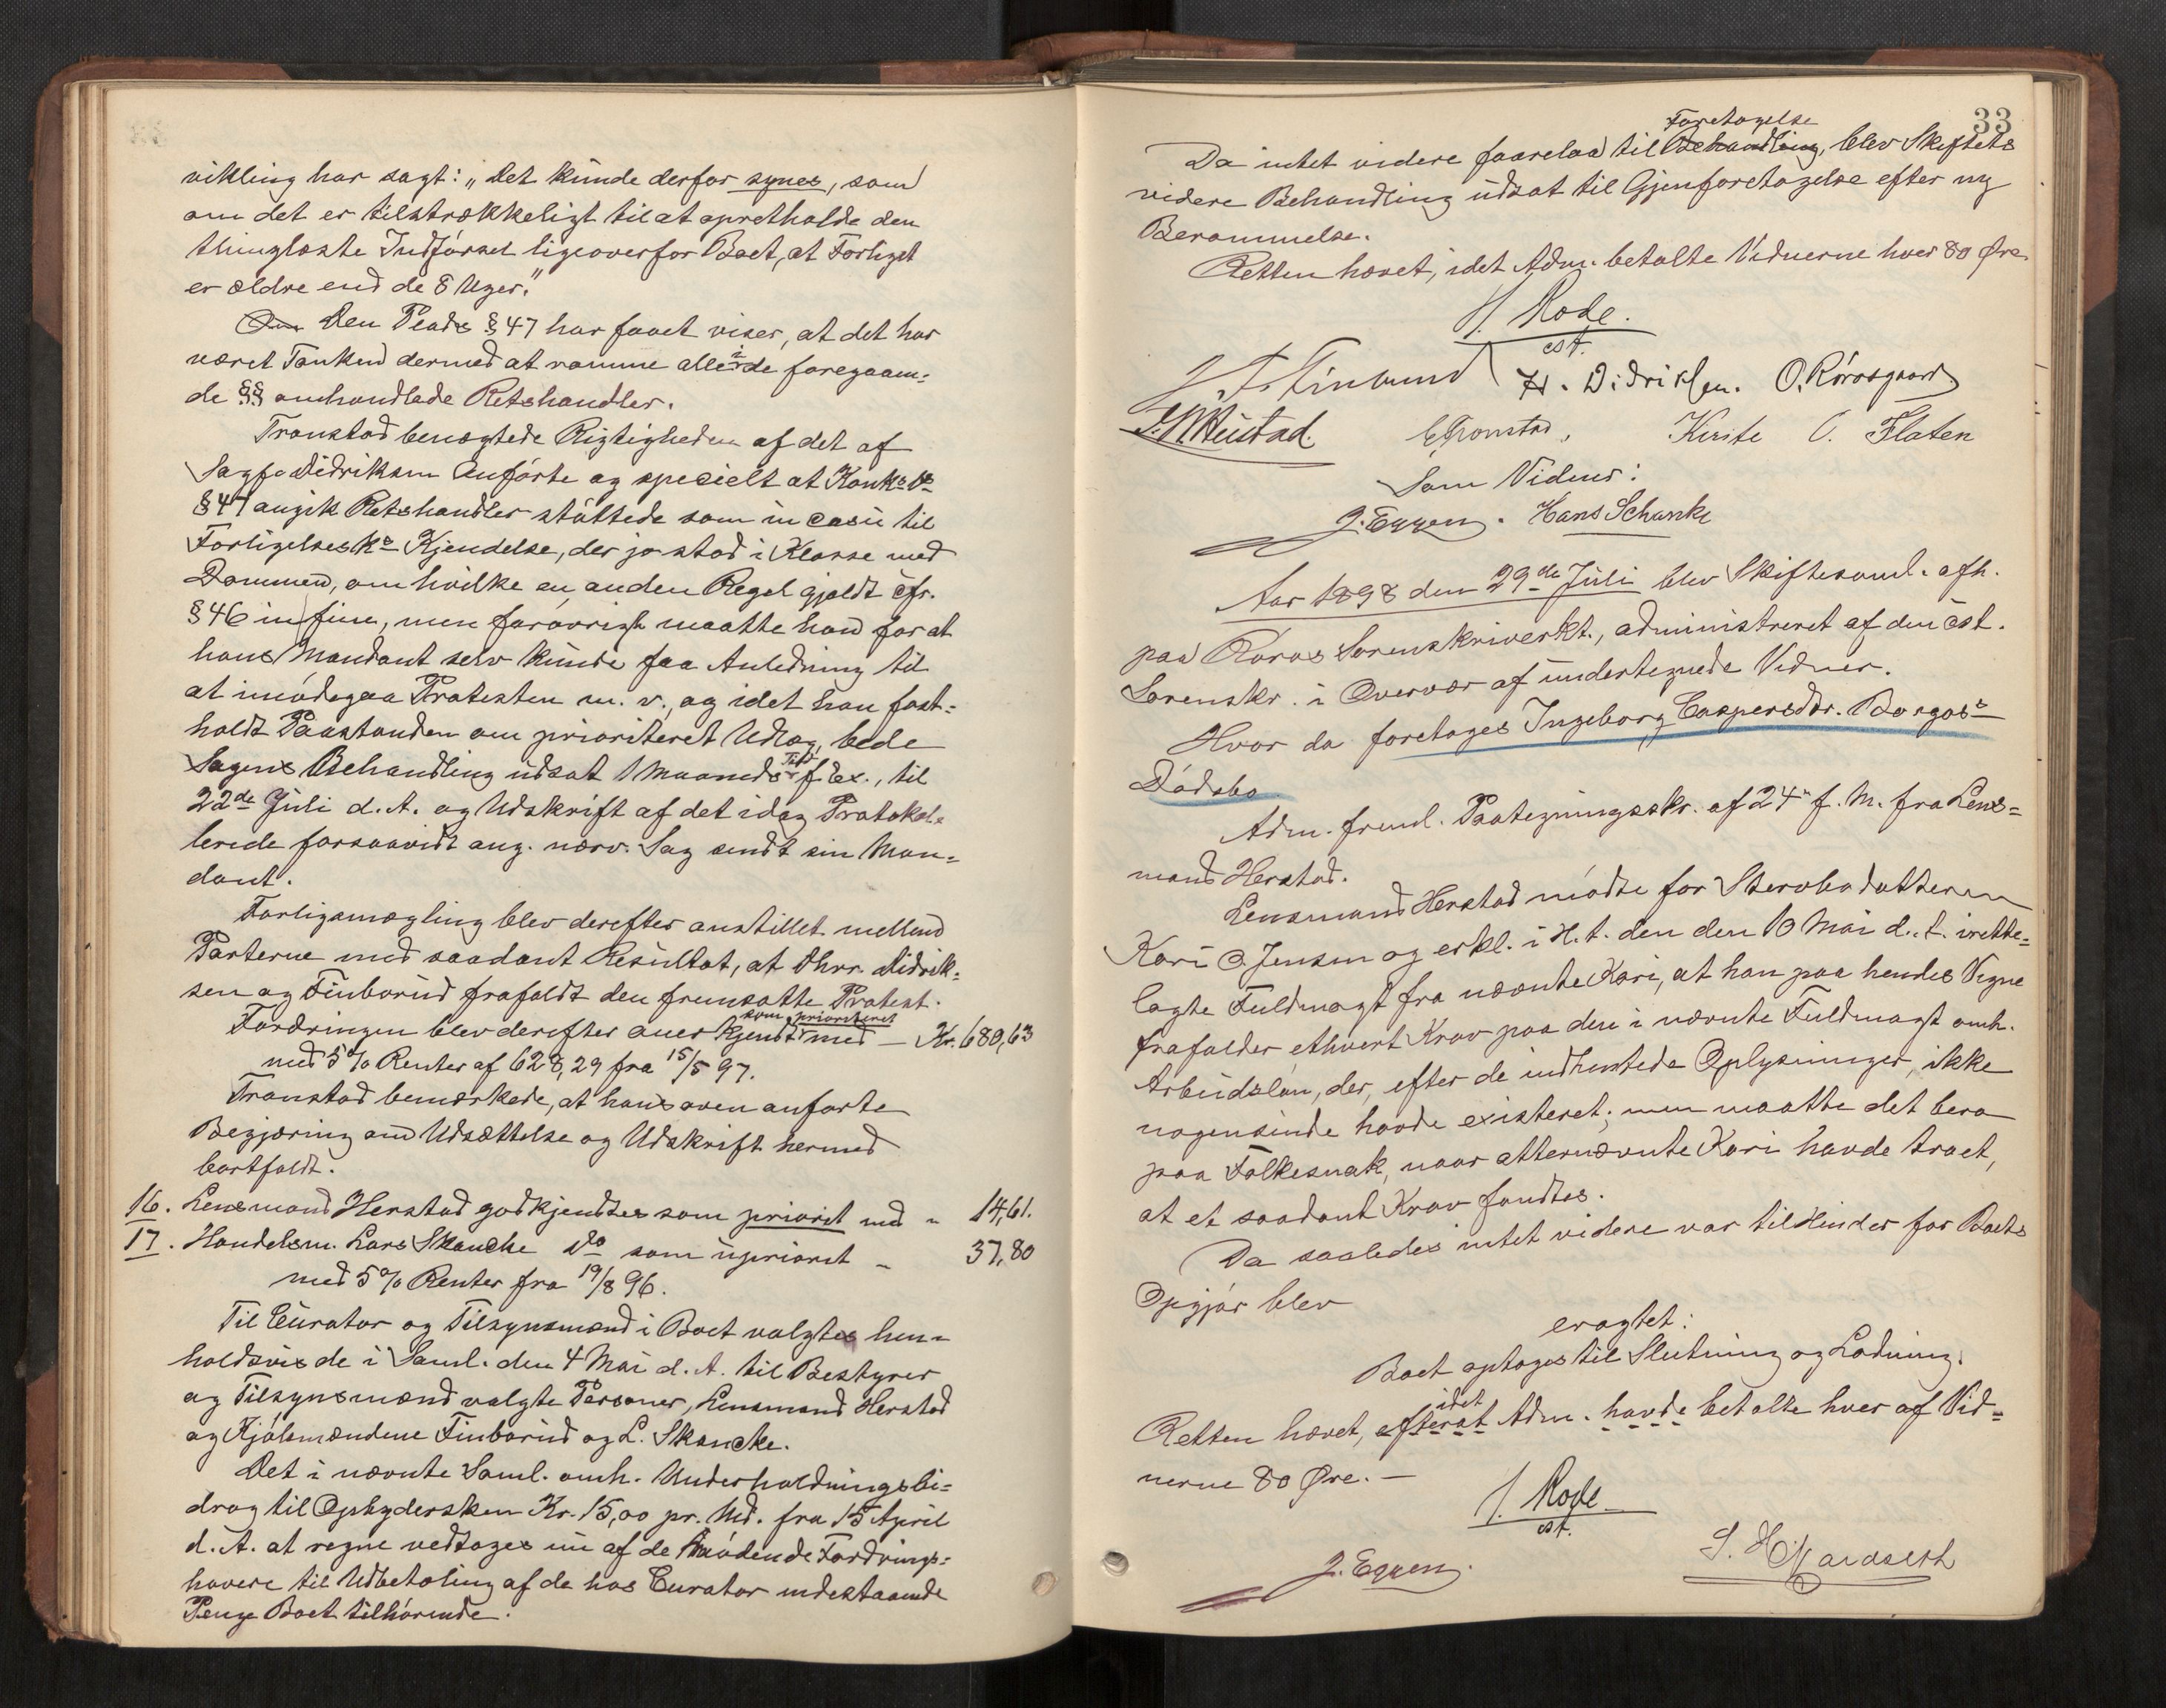 vikling har sagt: „Det kunde derfor synes, som
om det er tilstrækkeligt til at opretholde den
thinglæste Indførsel ligeoverfor Boet, at Forliget
er ældre end de 8 Uger."
Den Plads § 47 har faaet viser, at det har
været Tanken dermed at ramme alle i de foregaaen-
de §§ omhandlede Retshandler.
Tronstad benægtede Rigtigheden af det af
Sagf. Didriksen Anførte og specielt at Konks L.
§ 47 angik Retshandler støttede som in casu til
Forligelsesks Kjendelse, der jo stod i Klasse med
Dommen, om hvilke en anden Regel gjaldt cfr.
§ 46 in fine, men forøvrigt maatte han for at
hans Mandant selv kunde faa Anledning til
at imødegaa Protesten m. v., og idet han fast-
holdt Paastanden om prioriteret Udlæg, bede
Sagens Behandling udsat 1 Maaneds Tid f. Ex., til
22de Juli d. A. og Udskrift af det idag Protokol-
lerede forsaavidt ang. nærv. Sag sendt sin Man-
dant.
Forligsmægling blev derefter anstillet mellem
Parterne med saadant Resultat, at Dhrr. Didrik-
sen og Finborud frafaldt den fremsatte Protest.
Fordringen blev derefter anerkjendt som prioriteret med — Kr. 680,63
med 5% Renter af 628,29 fra 15/5 97.
Tronstad bemærkede, at hans oven anførte
Begjæring om Udsættelse og Udskrift hermed
bortfaldt.
16. Lensmand Herstad godkjendtes som priorit. med " 14,61.
17. Handelsm. Lars Skancke do som upriorit. " 37,80
med 5% Renter fra 19/8 96.
Til Curator og Tilsynsmænd i Boet valgtes hen-
holdsvis de i Saml. den 4 Mai d. A. til Bestyrer
og Tilsynsmænd valgte Personer, Lensmand Herstad
og Kjøbmændene Finborud og L. Skancke.
Det i nævnte Saml. omh. Underholdningsbi-
drag til Opbydersken Kr. 15,00 pr. Md. fra 15 April
d. A. at regne vedtoges nu af de mødende Fordrings-
havere til Udbetaling af de hos Curator indestaaende
Penge Boet tilhørende.
33
Da intet videre forelaa til Behandling Foretagelse, blev Skiftets
videre Behandling udsat til Gjenforetagelse efter ny
Berammelse.
Retten hævet, idet Adm. betalte Vidnerne hver 80 Øre.
J. Rode.
cst.
Finborud H. Didriksen. O. Rørosgaard
Tronstad, Kirste O. Flaten
Som Vidner:
J. Eggen. Hans Schanke
Aar 1898 den 29de Juli blev Skiftesaml. afh.
paa Røros Sorenskriverkt., administreret af den cst.
Sorenskr. i Overvær af undertegnede Vidner.
Hvor da foretoges Ingeborg Caspersdtr. Borgos's
Dødsbo.
Adm. freml. Paategningsskr. af 24" f. M. fra Lens-
mand Herstad.
Lensmand Herstad mødte for Stervbodatteren
Kari O. Jensen og erkl. i H. t. den den 10 Mai d. A. irette-
lagte Fuldmagt fra nævnte Kari, at han paa hendes Vegne
frafalder ethvert Krav paa den i nævnte Fuldmagt omh.
Arbeidsløn, der, efter de indhentede Oplysninger, ikke
nogensinde havde existeret; men maatte det bero
paa Folkesnak, naar atternævnte Kari havde troet,
at et saadant Krav fandtes.
Da saaledes intet videre var til Hinder for Boets
Opgjør blev
eragtet:
Boet optages til Slutning og Lodning.
Retten hævet, efterat idet Adm. havde betalte hver af Vid-
nerne 80 Øre. —
J. Rode
cst.
J. Eggen.